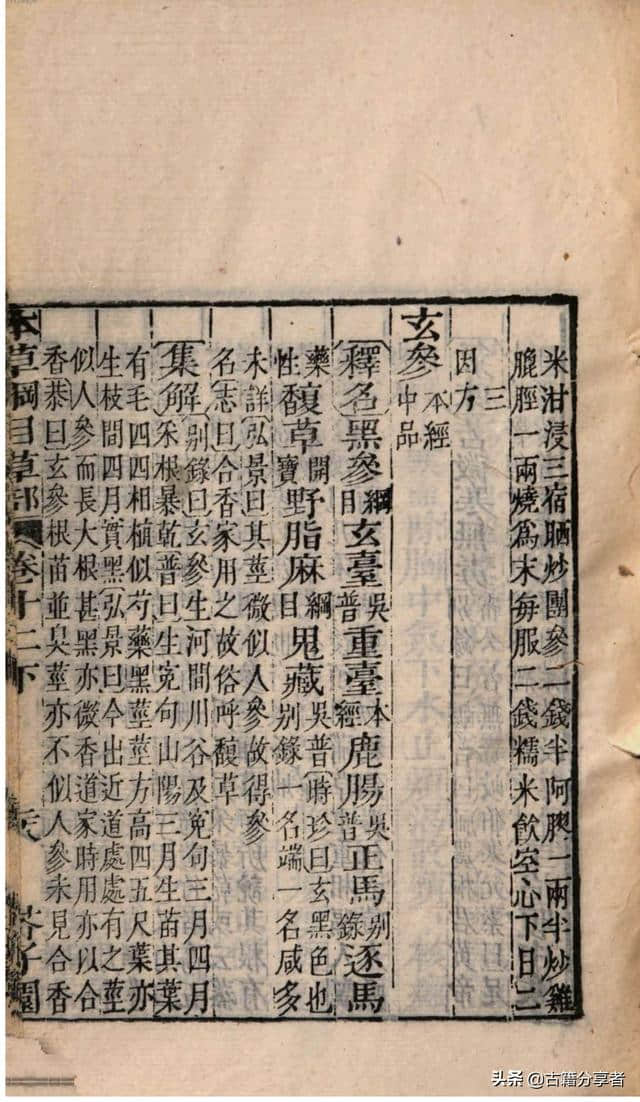 米泔浸三宿晒炒團參二錢半阿膠一兩半炒雞
膍脛一兩燒爲末每服二錢糯米飲空心下日二
三因方
玄參本經中品
釋名黑參綱目玄臺吳普重臺本經鹿腸吳普正馬別錄逐馬
藥性馥草開寶野脂麻綱目鬼藏吳普時珍曰玄黑色也別錄一名端一名咸多
未詳弘景曰其莖微似人參故得參
名志曰合香家用之故俗呼馥草
集解別錄曰玄參生河間川谷及冤句三月四月
采根暴乾普曰生冤句山陽三月生苗其葉
有毛四四相植似芍藥黑莖莖方高四五尺葉亦
生枝間四月實黑弘景曰今出近道處處有之莖
似人參而長大根甚黑亦微香道家時用亦以合
香恭曰玄參根苗並臭莖亦不似人參未見合香
本草綱目草部卷十二下 芥子園
头条 @古籍分享者